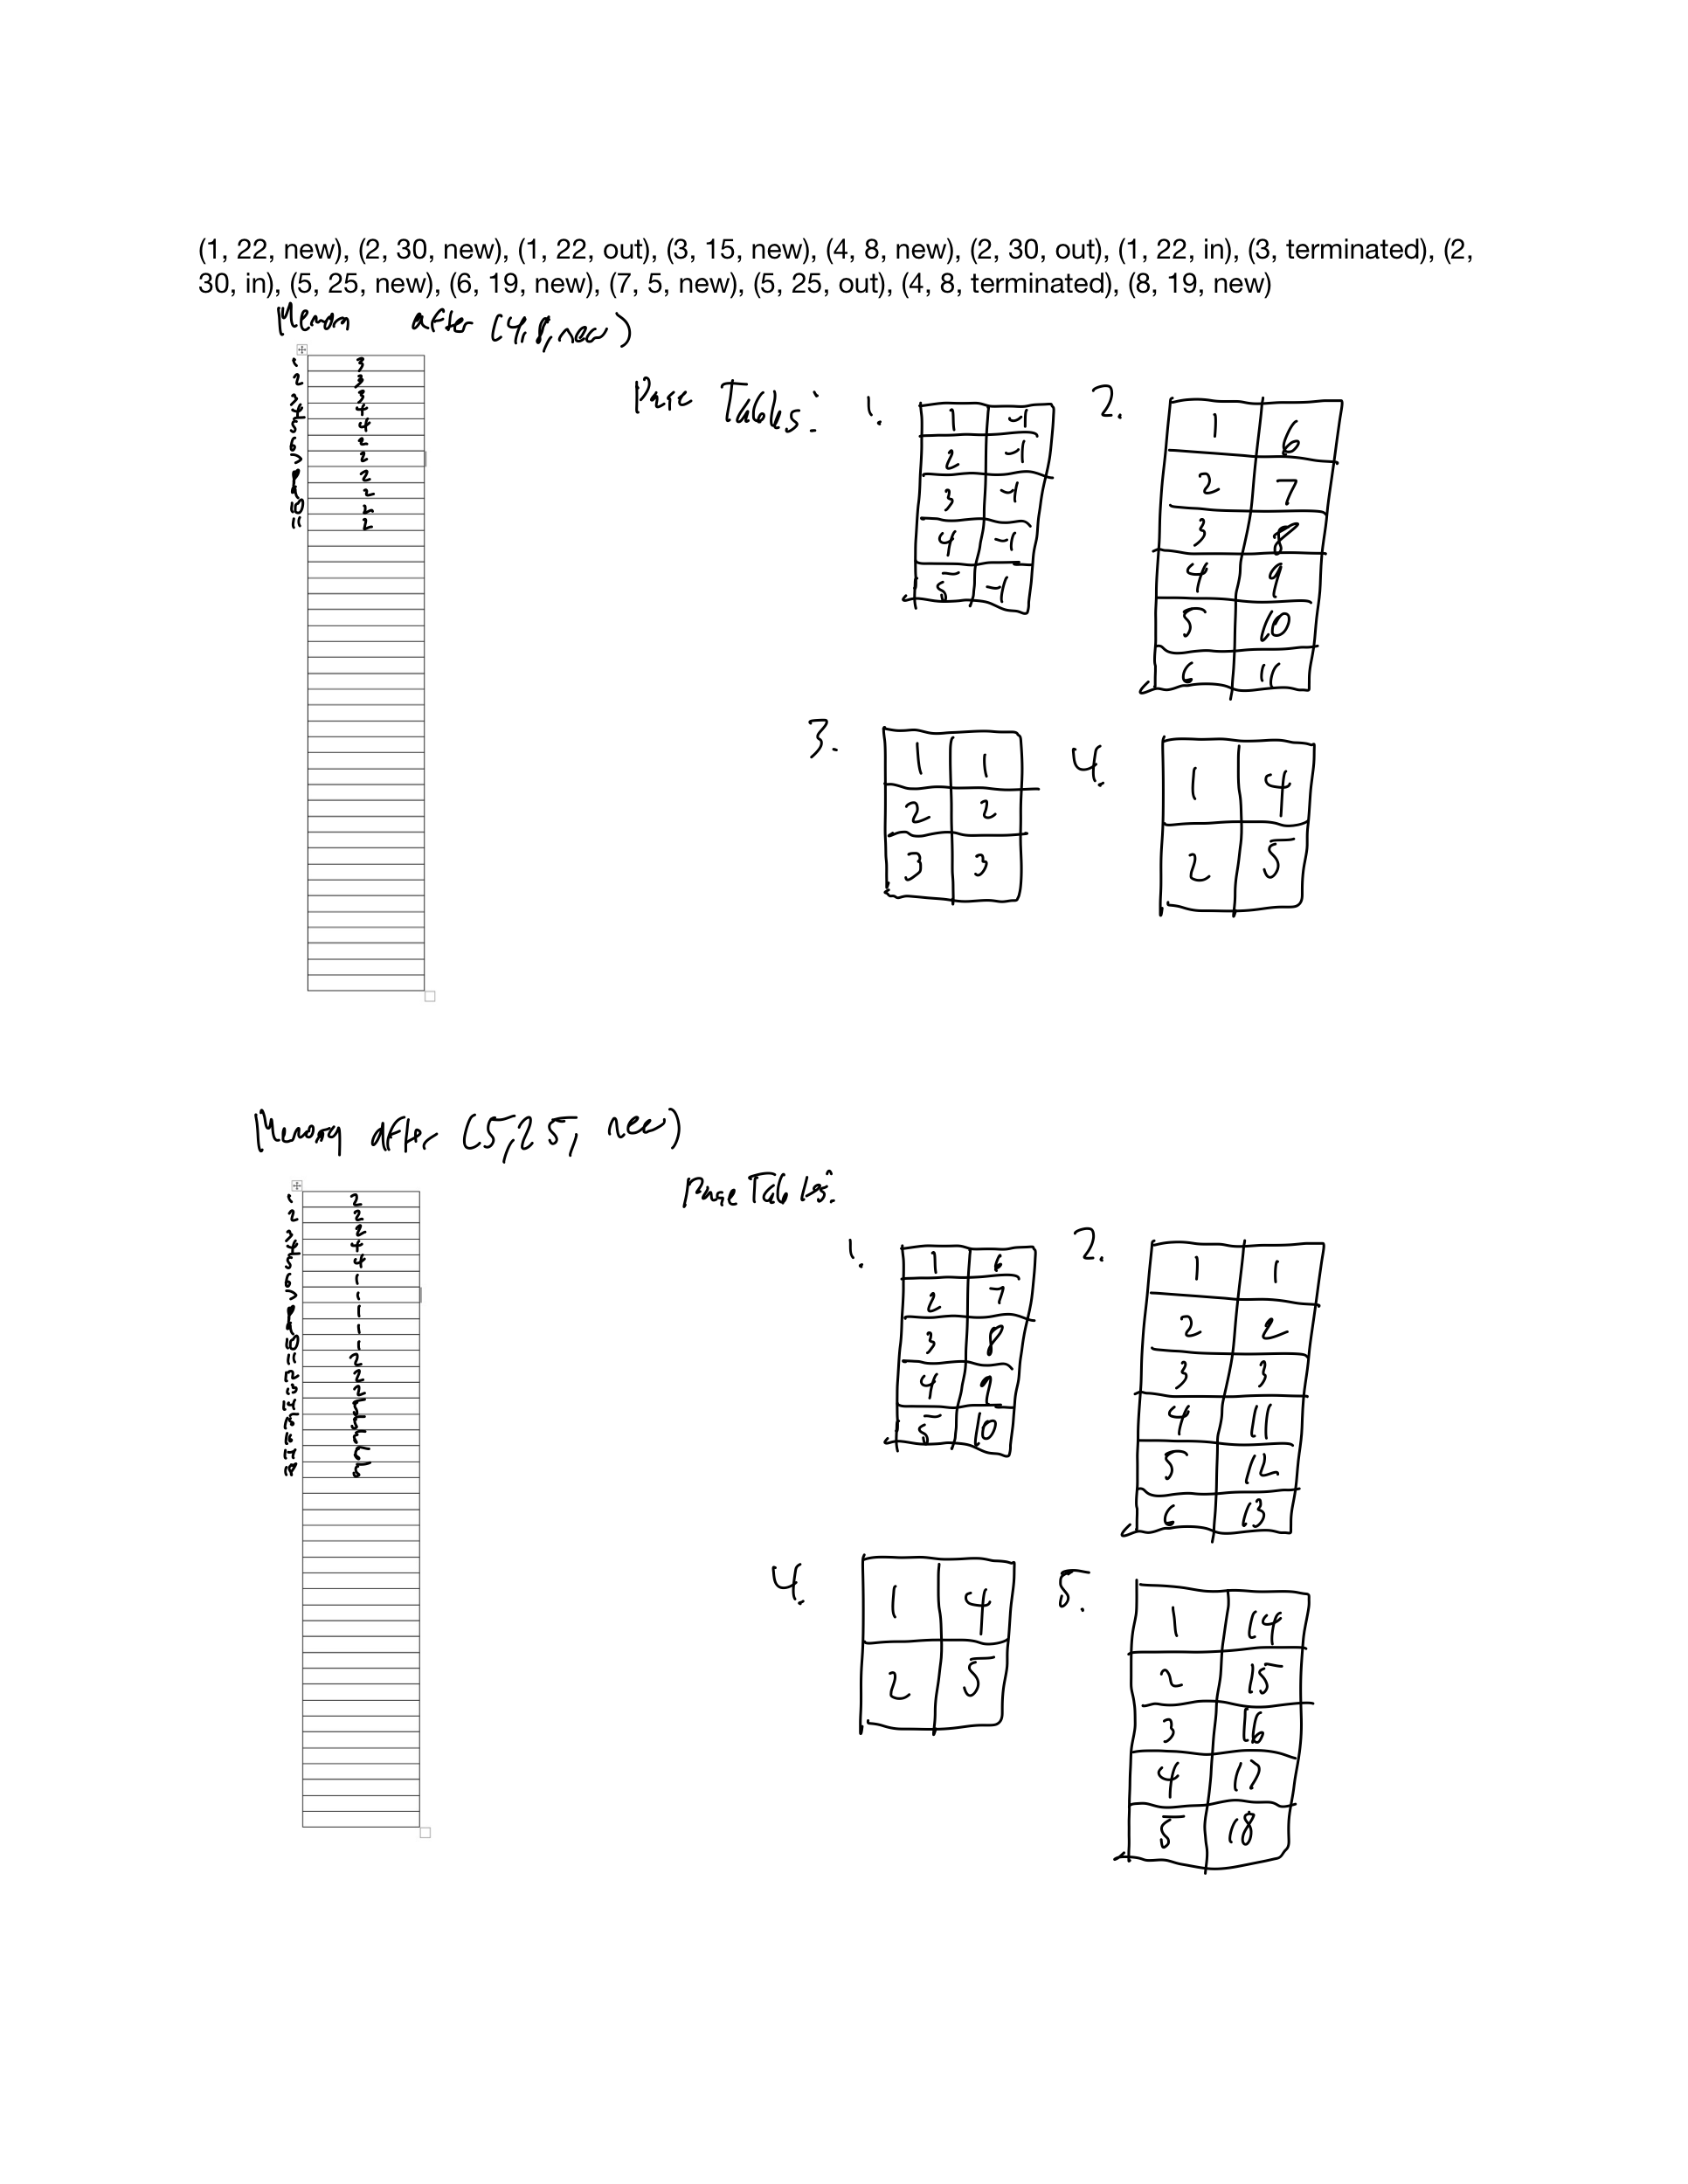 (1, 22, new), (2, 30, new), (1, 22, out), (3, 15, new), (4, 8, new), (2, 30, out), (1, 22, in), (3, terminated), (2,
30, in), (5, 25, new), (6, 19, new), (7, 5, new), (5, 25, out), (4, 8, terminated), (8, 19, new)
Memory after (4,8,new)
1 3
2 3
3 3
4 4
5 4
6 2
7 2
8 2
9 2
10 2
11 2
Page Tables:
1.
1 -1
2 -1
3 -1
4 -1
5 -1
2.
1 6
2 7
3 8
4 9
5 10
6 11
3.
1 1
2 2
3 3
4.
1 4
2 5
Memory after (5,25, new)
1 2
2 2
3 2
4 4
5 4
6 1
7 1
8 1
9 1
10 1
11 2
12 2
13 2
14 5
15 5
16 5
17 5
18 5
Page Tables:
1.
1 6
2 7
3 8
4 9
5 10
2.
1 1
2 2
3 3
4 11
5 12
6 13
4.
1 4
2 5
5.
1 14
2 15
3 16
4 17
5 18